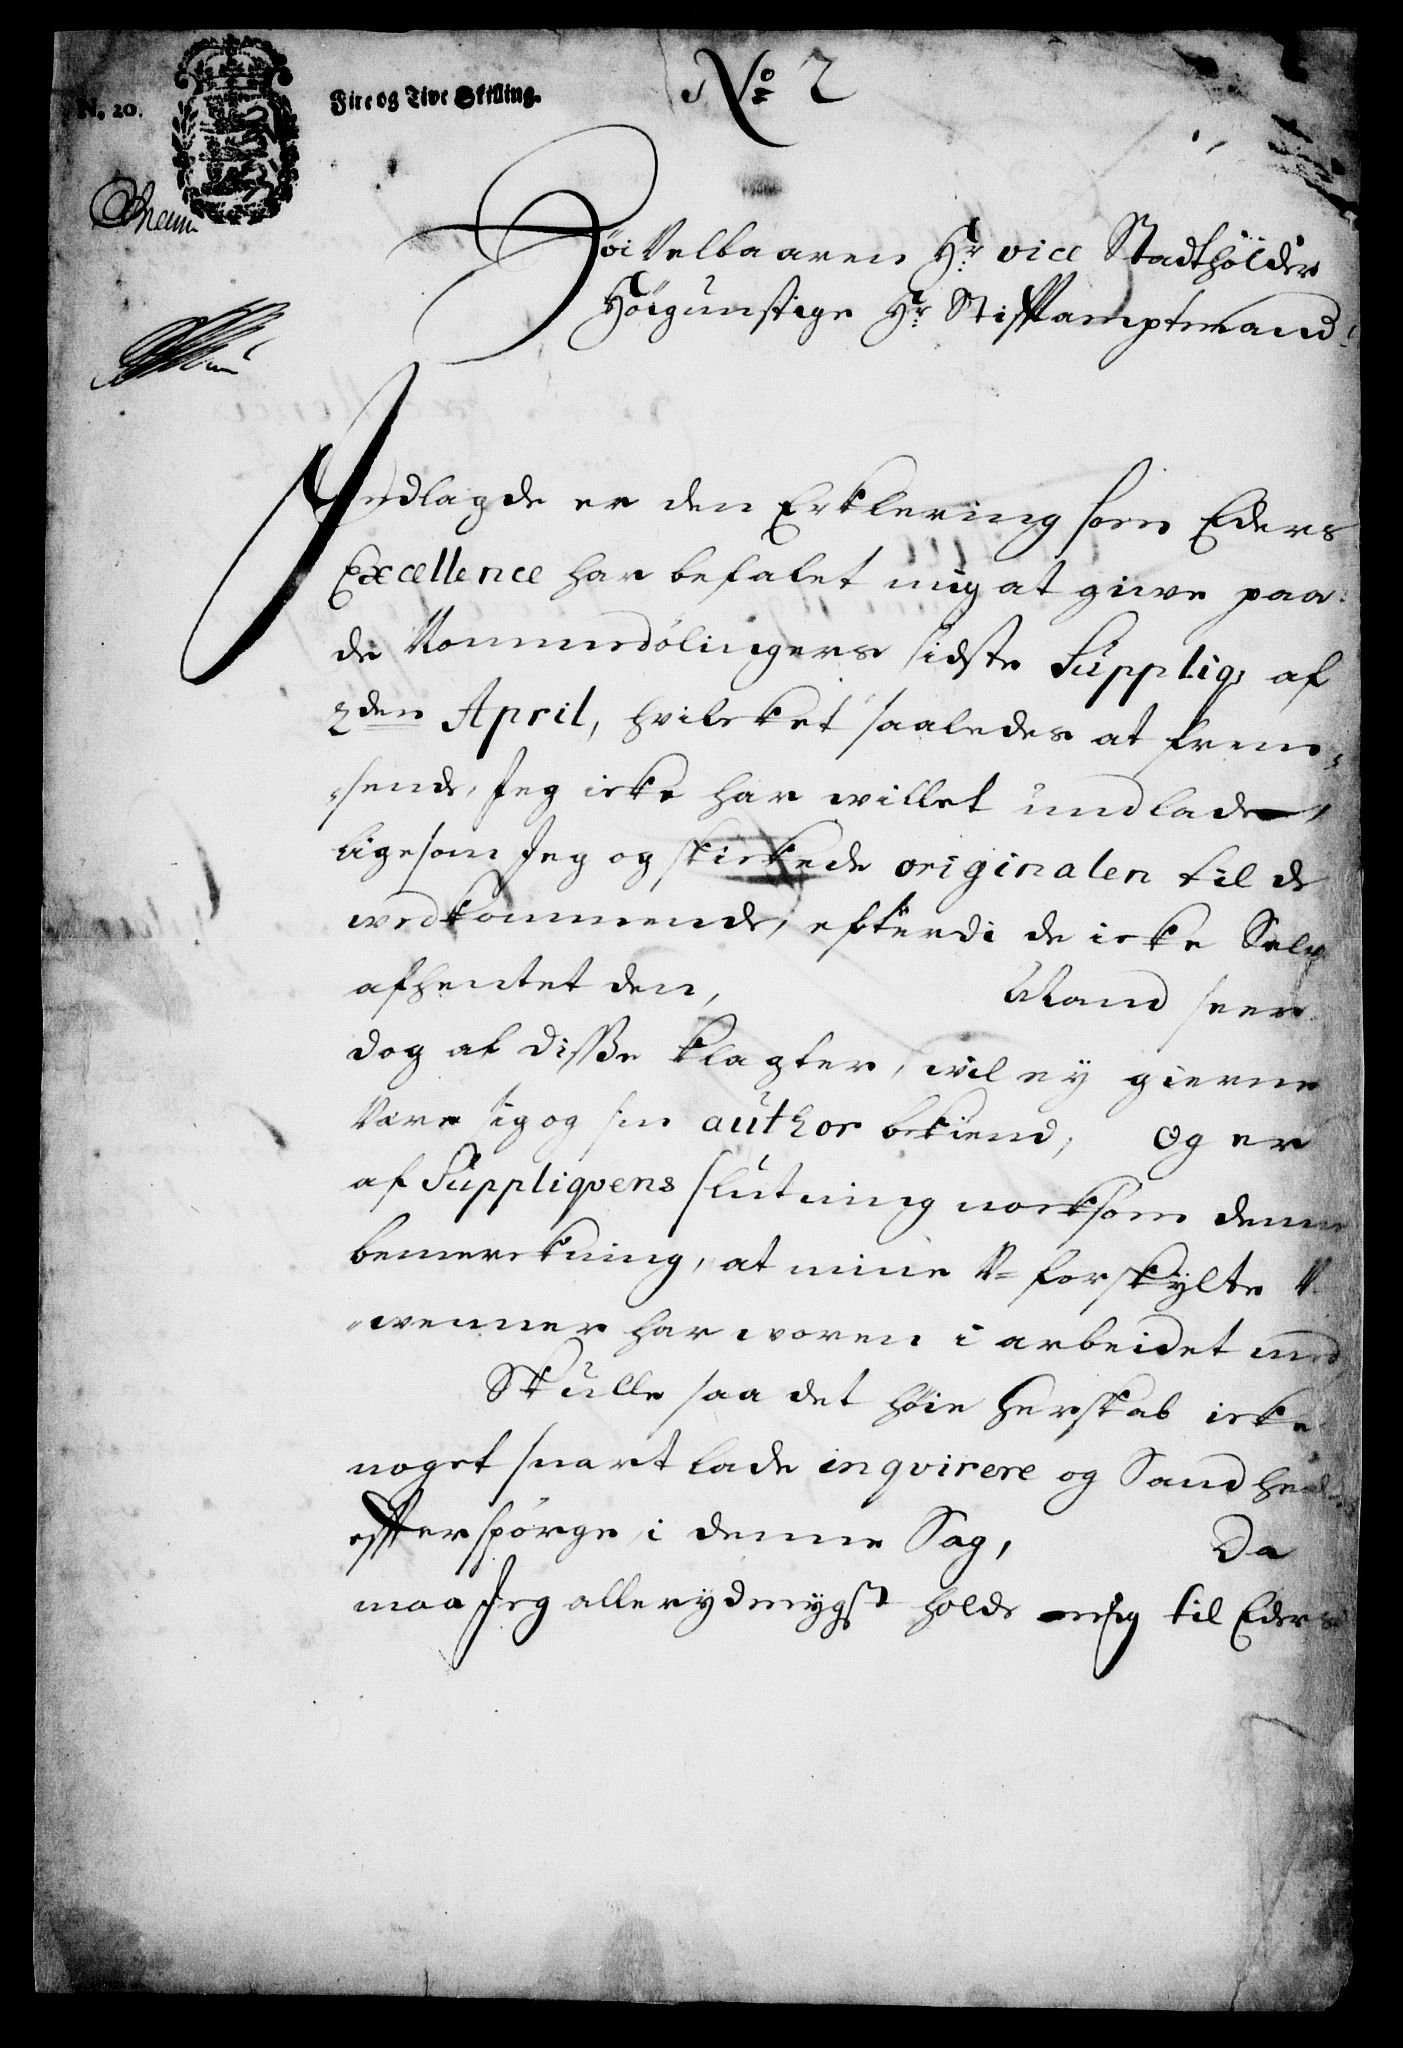 No 2
N. 20.
Fire og Tive Skilling.
Høi Velbaaren Hr vice Stadtholder
Høigunstige Hr Stifftamptmand!
Indlagde er den Erklering som Eders
Excellence har befalet mig at giwe paa
de Rommedølingers sidste Suppliq; af
2den April, hvilcket saaledes at frem¬
sende, Jeg icke har willet undlade,
ligesom Jeg og skickede originalen til de
wedkommende, efterdi de icke Selv
afhentet den, Mand seer
dog af disse klagter, wil ey gierne
være sig og sin author bekiend, Og er
af Suppliqvens slutning nocksom denne
bemerckning, at mine U= forskylte U
wenner har woren i arbeidet med
Skulle saa det høie Herskab icke
noget snart lade inqvirere og Sandhed
effterspørge i denne Sag, Da
maa Jeg allerydmygst holde mig til Eders